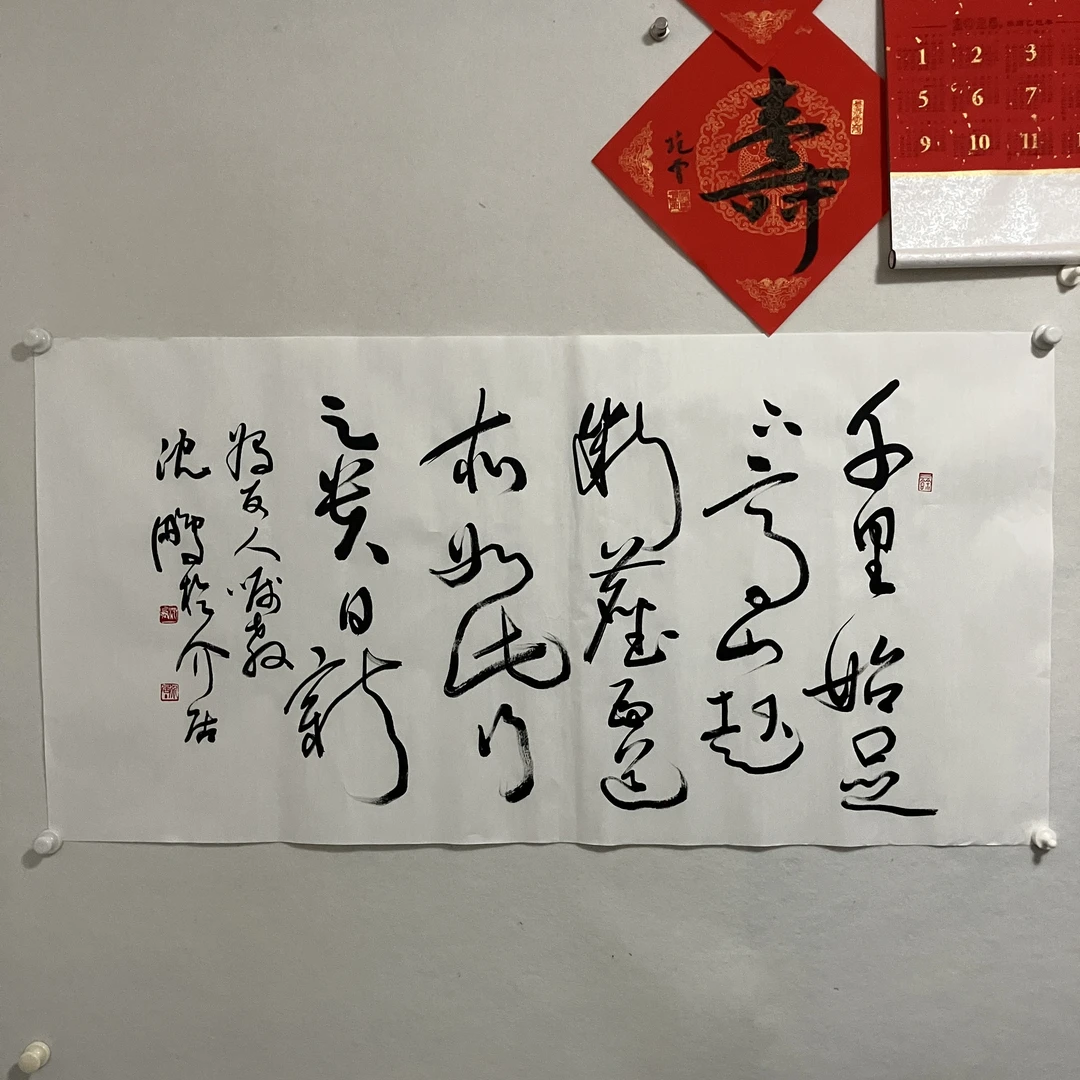 千里始足
下高山起
微塵吾道
亦如此行
之貴日新
為友人嘱教
沈鵬於介居
壽
1 2 3
5 6 7
9 10 11